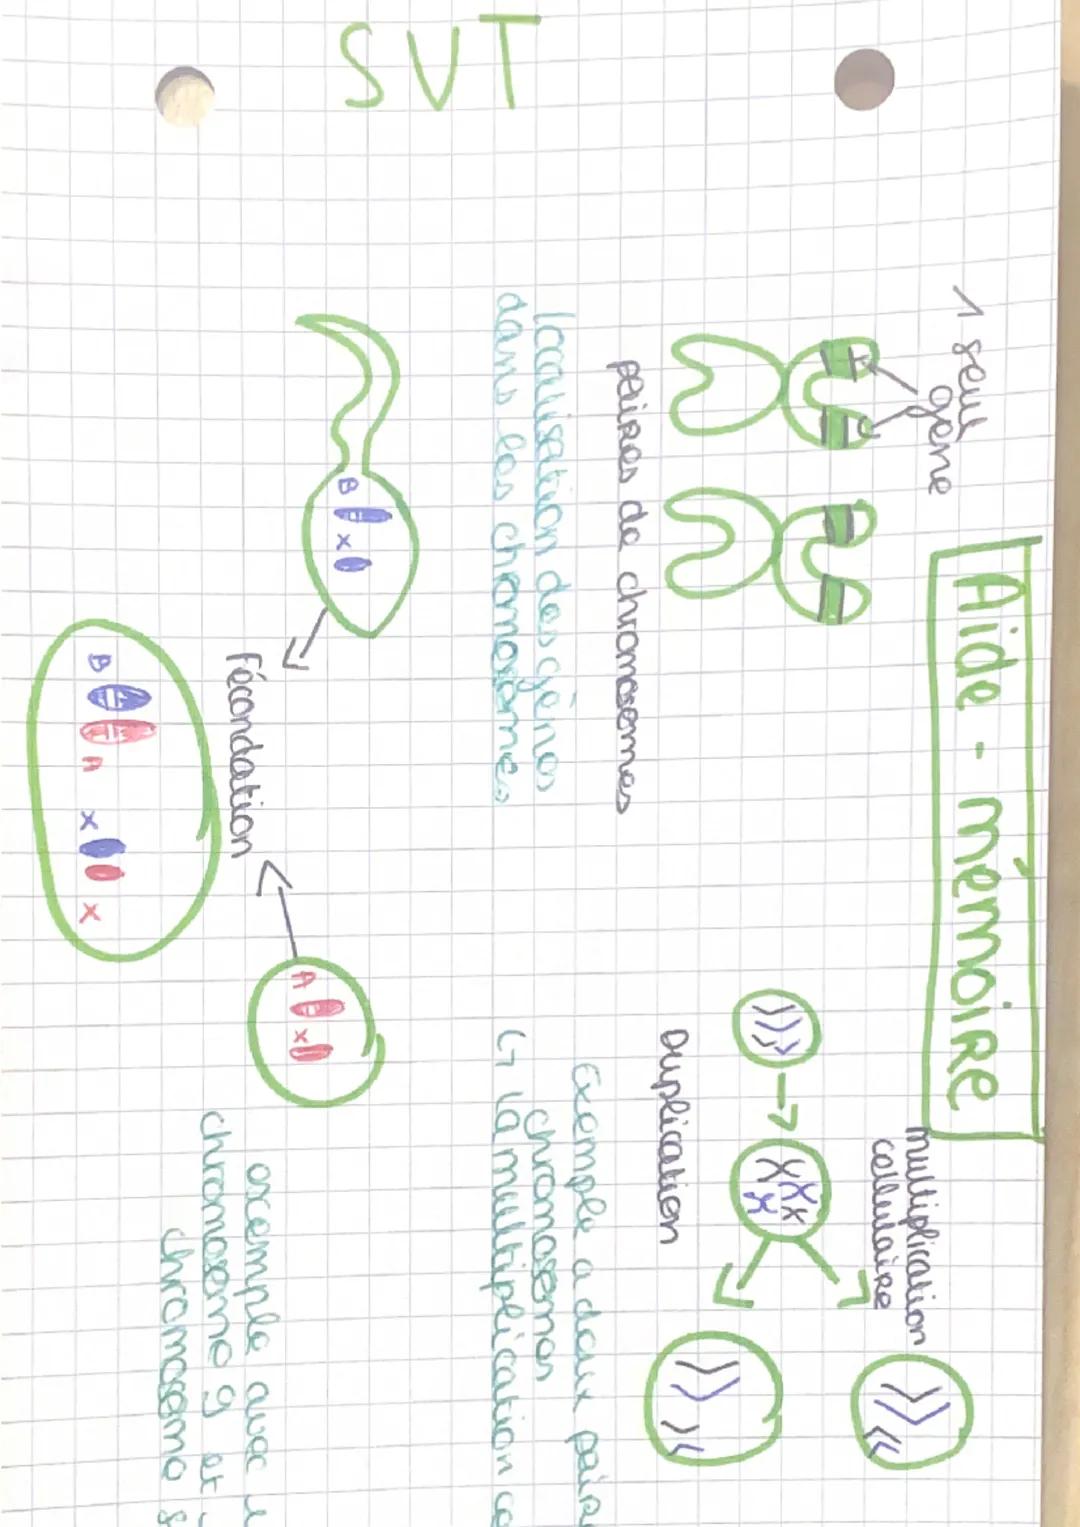 SVT
Aide-mémoire
1 seul
gène
paires de chromosomes
localisation des gènes
dans les chromosomes
multiplication
cellulaire
Duplication
Exemple a deux
chromosomes
↳ la multiplication
B x
Fécondation
A x
B A x x
exemple avec
chromosome 9 et
chromosome